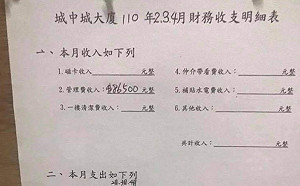 城中城大廈110年2.3.4月財務收支明細表
一、本月收入如下列
1.磁卡收入 元整 4.仲介帶看費收入: 元整
2.管理費收入:486500元整 5.補貼水電費收入: 元整
3.一樓清潔費收入: 元整 6.其他收入: 元整
共計收入: 元整
二、本月支出如下列